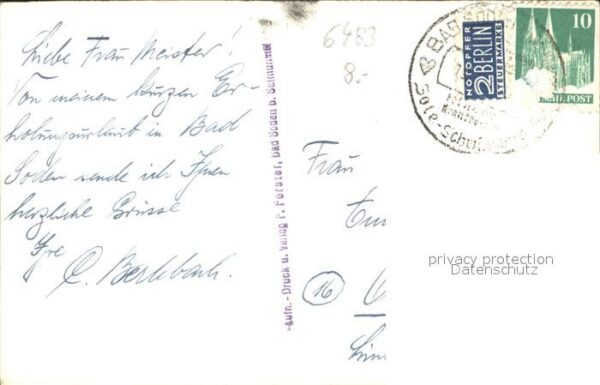 Liebe Frau Meister!
Von meinem kurzen Er-
holungsurlaub in Bad
Soden sende ich Ihnen
herzliche Grüsse
Ihre
C. Berlebach.
6483
8.-
Aufn.- Druck u. Verlag F. Förster, Bad Soden b. Salmünster
Frau
16
BAD SODEN
Sole-
NOTOPFER
2 BERLIN
STEUERMARKE
10
POST
privacy protection
Datenschutz